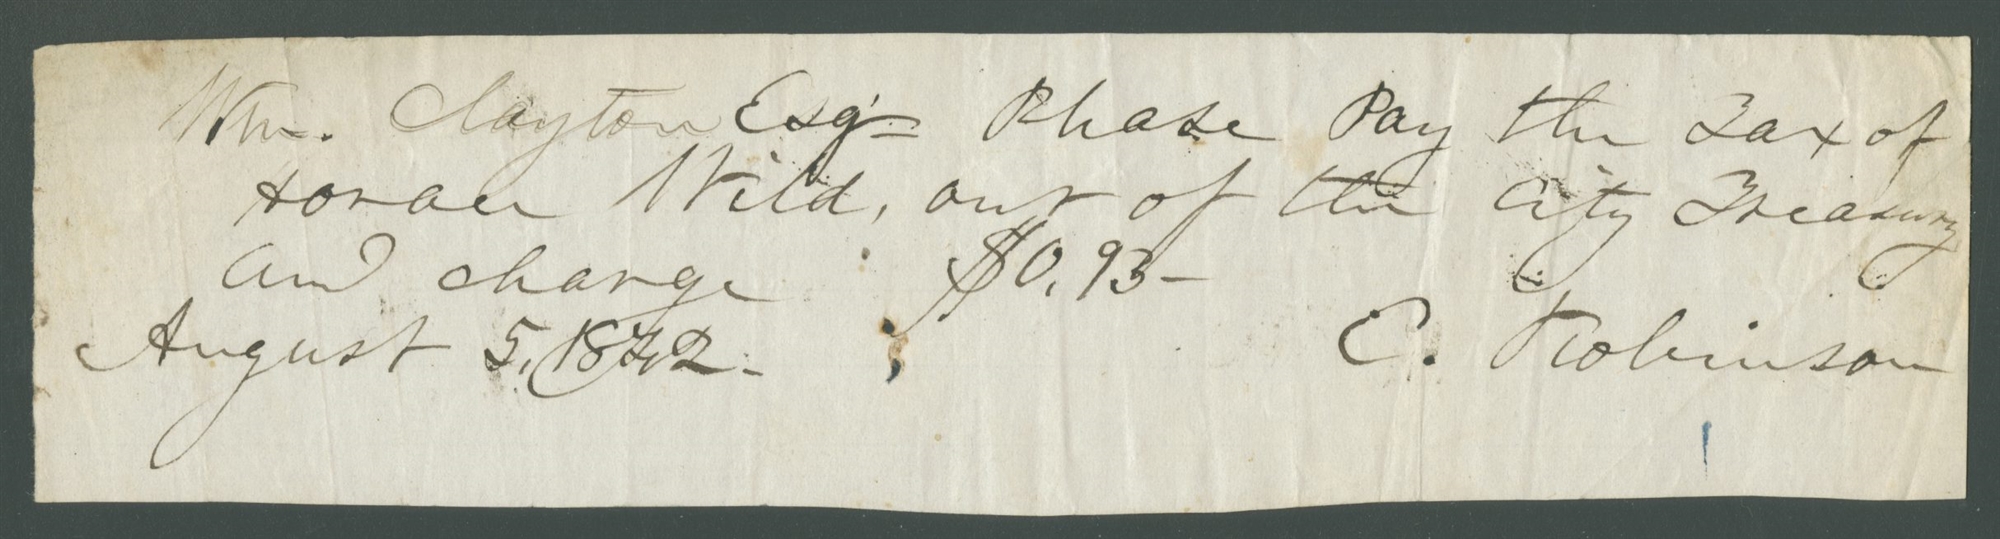 Wm. Clayton Esqr= Please Pay the Tax of
Horace Wild, out of the City Treasury
and charge $0,93-
August 5, 1842.
E. Robinson